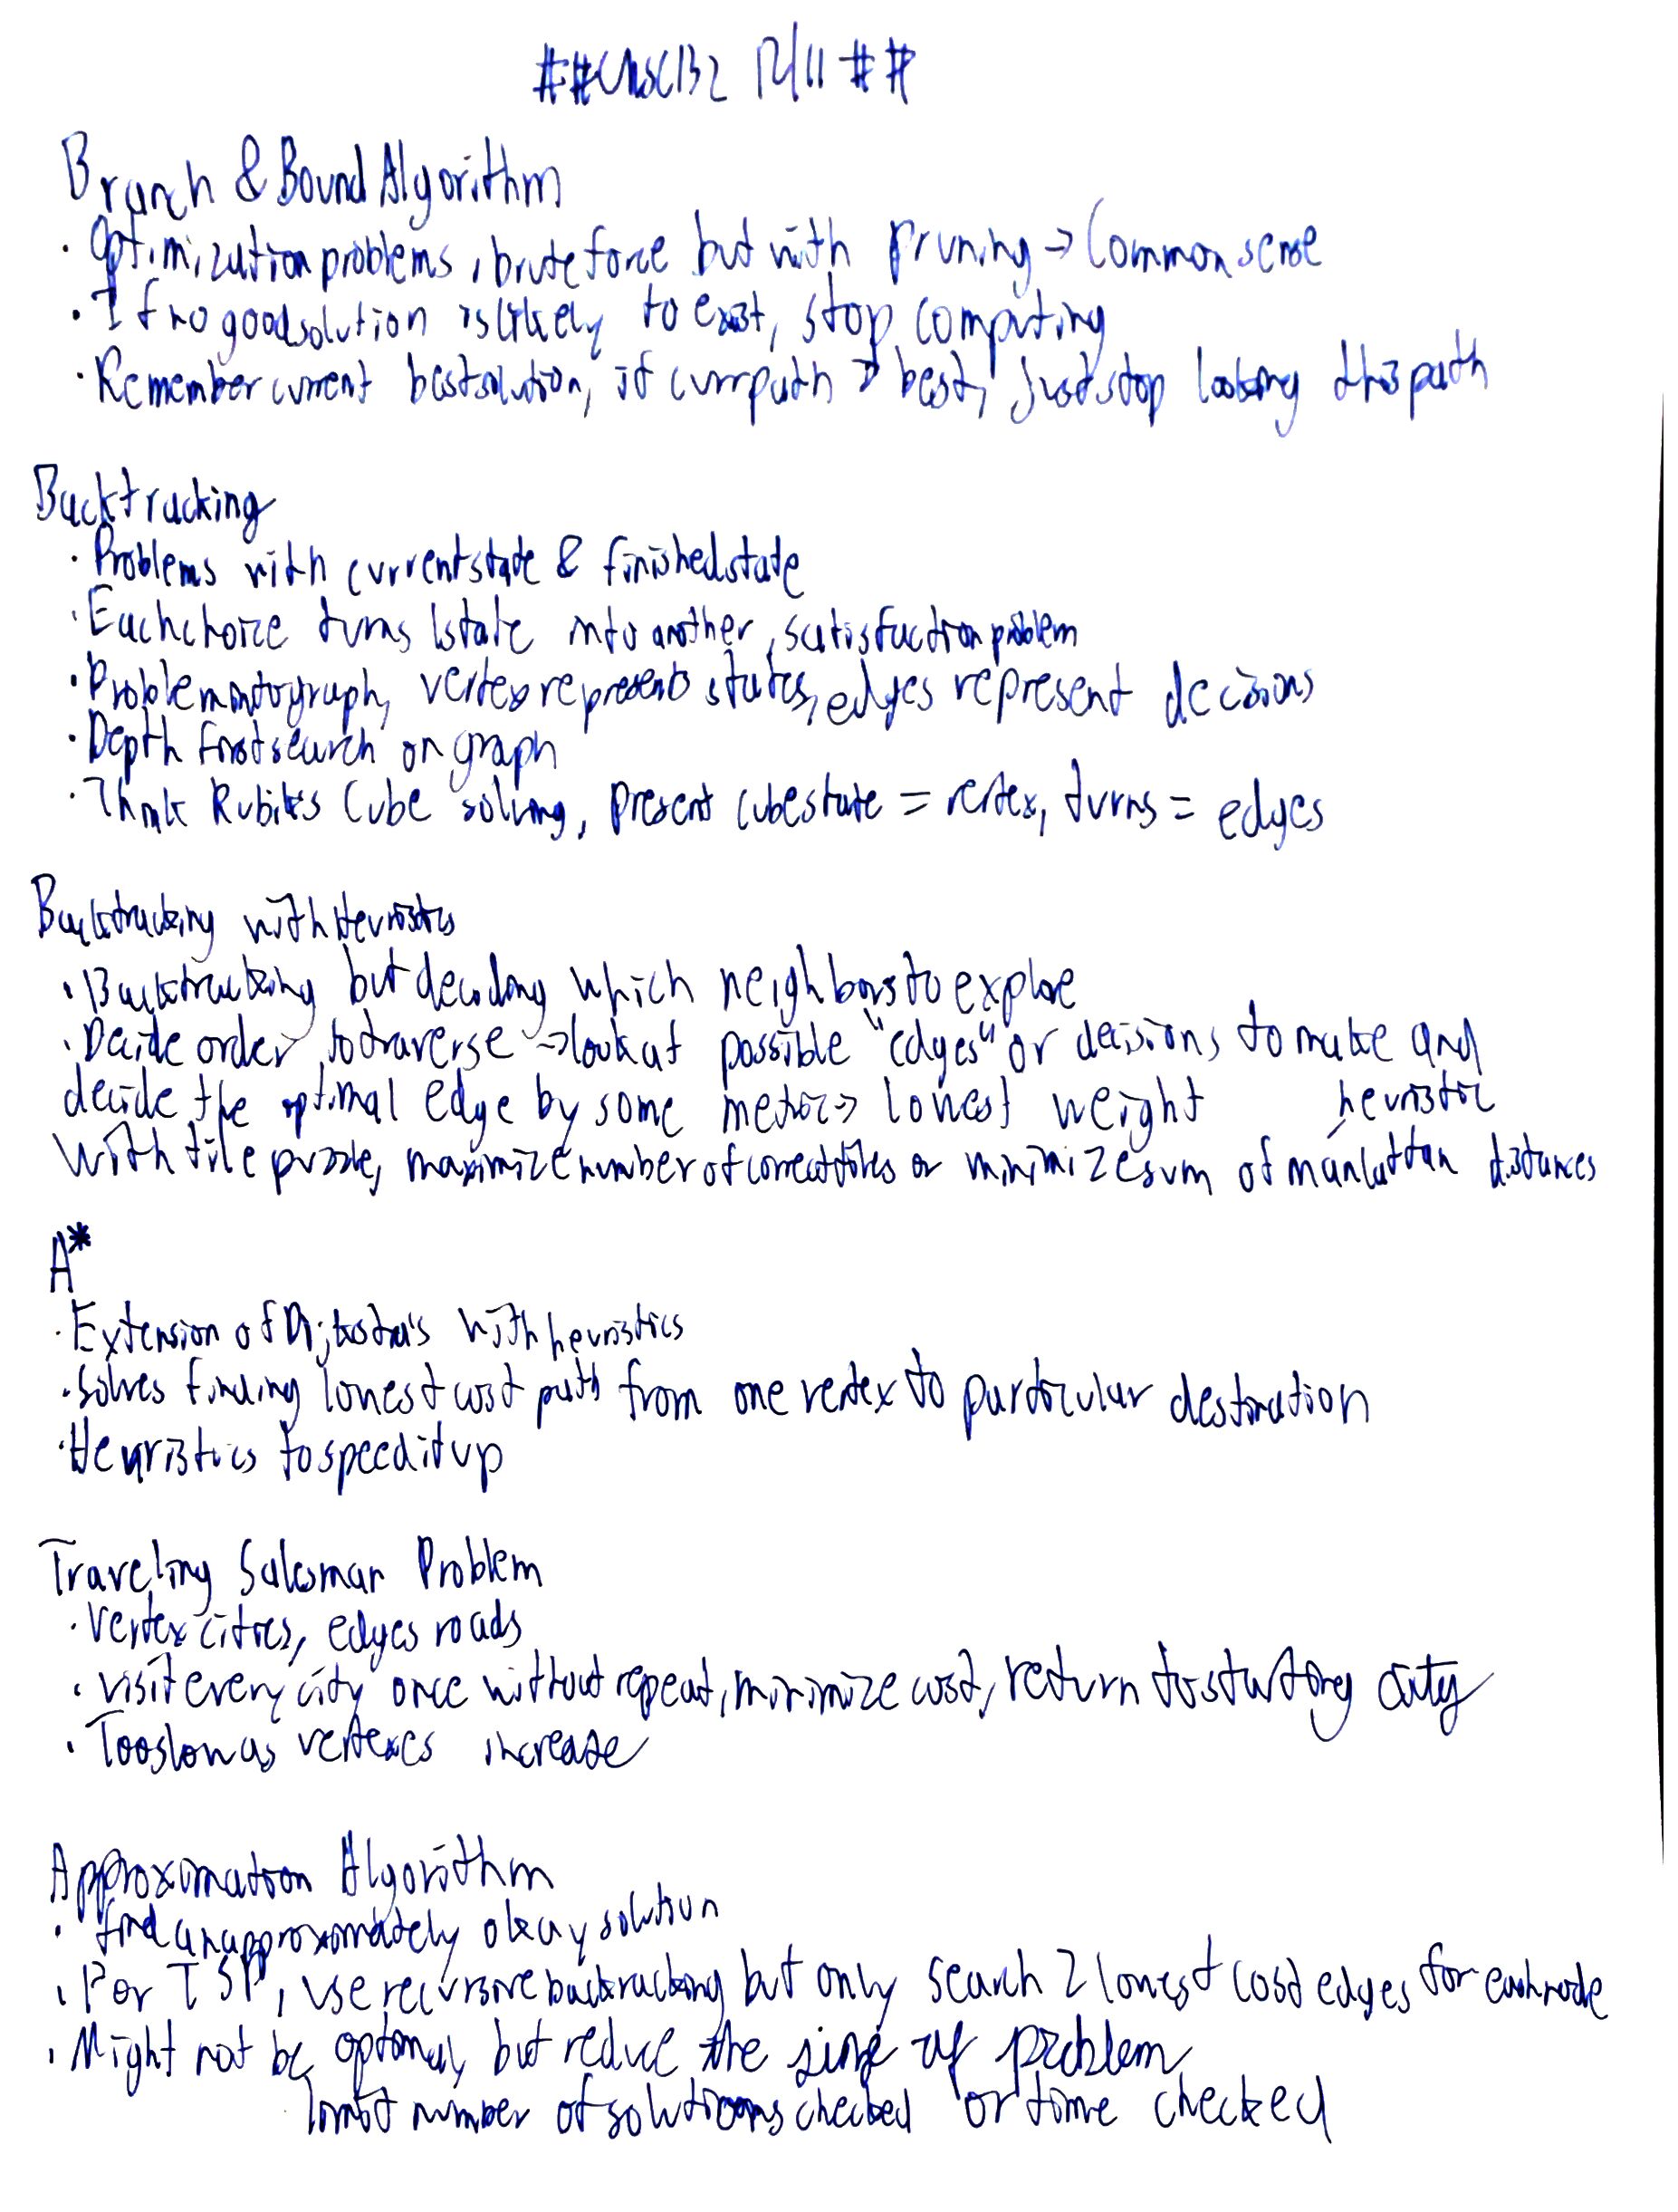 ## CMSC132 12/11 ##
Branch & Bound Algorithm
· Optimization problems, brute force but with pruning → Common sense
· If no good solution is likely to exist, stop computing
· Remember current best solution, if curr path > best, just stop looking this path
Backtracking
· Problems with current state & finished state
· Each choice turns 1 state into another, satisfaction problem
· Problem into graph, vertex represents states, edges represent decisions
· Depth first search on graph
· Think Rubik's Cube solving, present cube state = vertex, turns = edges
Backtracking with Heuristics
· Backtracking but deciding which neighbors to explore
· Decide order to traverse → look at possible "edges" or decisions to make and
decide the optimal edge by some metric → lowest weight heuristic
With tile puzzle, maximize number of correct tiles or minimize sum of manhattan distances
A*
· Extension of Dijkstra's with heuristics
· Solves finding lowest cost path from one vertex to particular destination
· Heuristics to speed it up
Traveling Salesman Problem
· Vertex cities, edges roads
· visit every city once without repeat, minimize cost, return to starting city
· Too slow as vertexes increase
Approximation Algorithm
· find an approximately okay solution
· For TSP, use recursive backtracking but only search 2 lowest cost edges for each node
· Might not be optimal, but reduce the size of problem
limit number of solutions checked or time checked